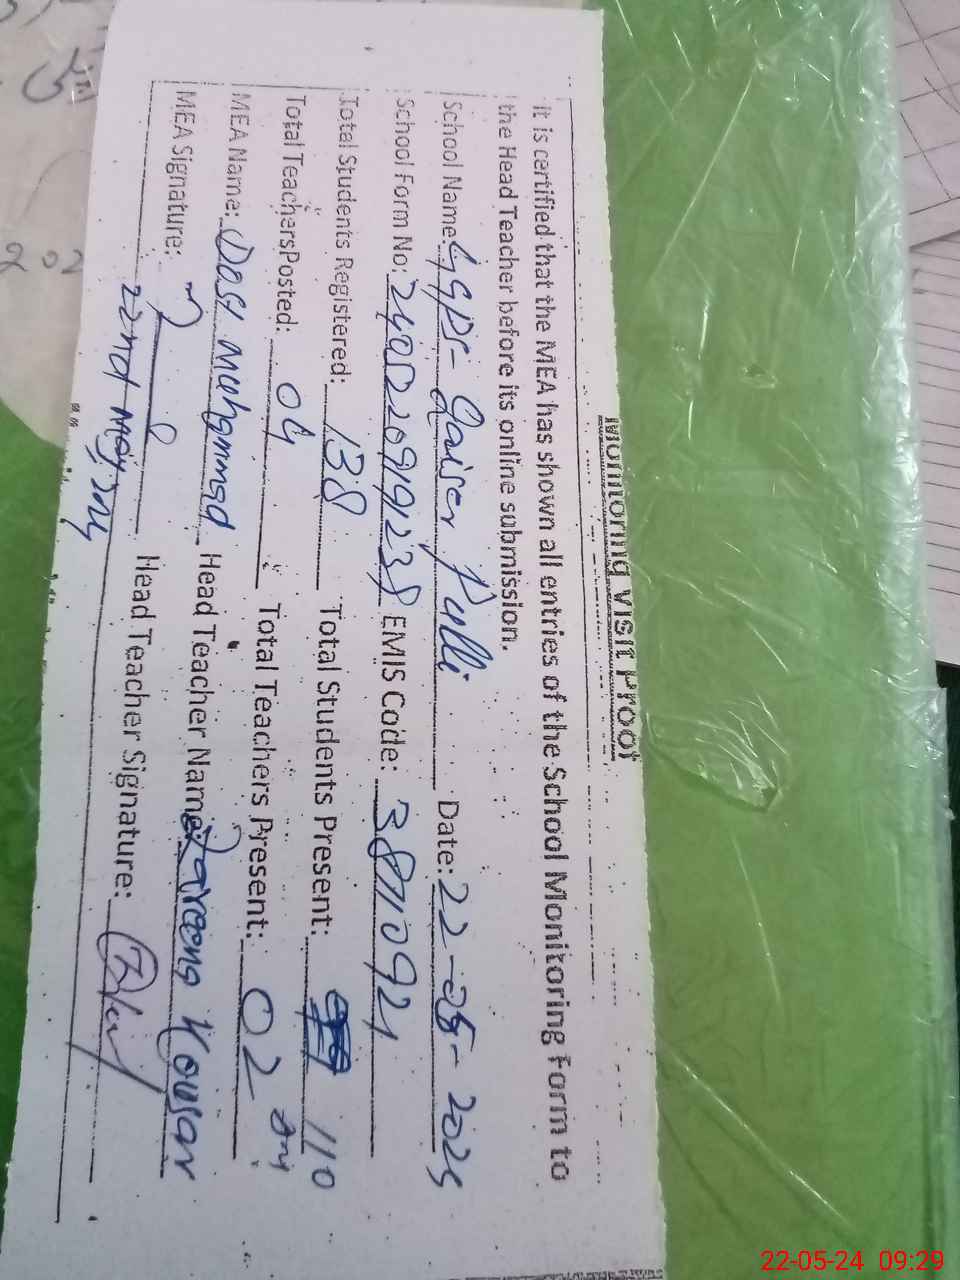 Monitoring Visit Proof
It is certified that the MEA has shown all entries of the School Monitoring Form to
the Head Teacher before its online submission.
School Name: GGPS- Qaiser Pulli Date: 22-05-2024
School Form No: EMIS Code: 38710921
Total Students Registered: 138 Total Students Present: 110
Total Teachers Posted: 04 Total Teachers Present: 02
MEA Name: Dost Muhammad Head Teacher Name: Zareena Kousar
MEA Signature: Head Teacher Signature:
22nd May,
22-05-24 09:29